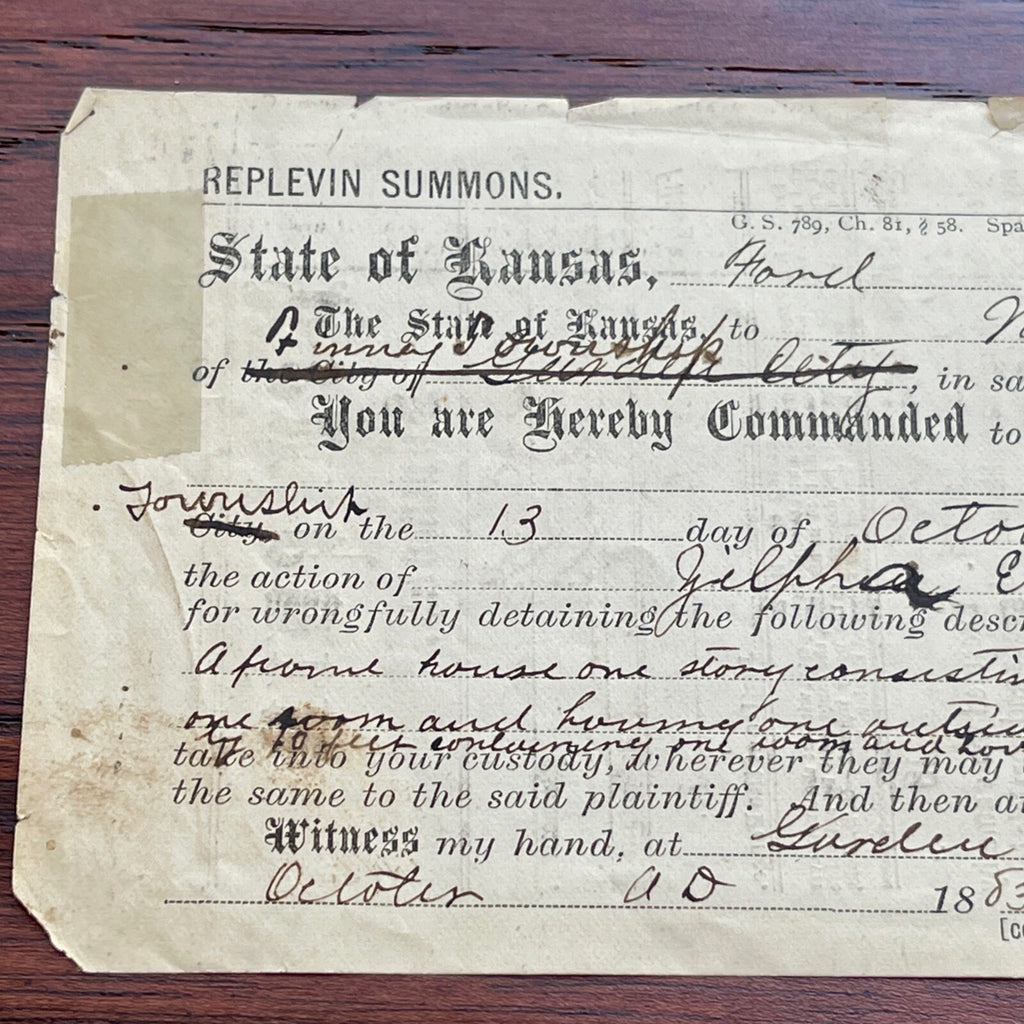 REPLEVIN SUMMONS.
G. S. 789, Ch. 81, § 58. Spa
State of Kansas, Ford
The State of Kansas, to
Finney Township
of the City of Garden City, in sa
You are Hereby Commanded to
Township
City, on the 13 day of Octo
the action of Zilpha E
for wrongfully detaining the following descr
A frame house one story consistin
one room and having one outsid
by 10 feet containing one room and hav
take into your custody, wherever they may
the same to the said plaintiff. And then a
Witness my hand, at Garden
October A D 1883
[co